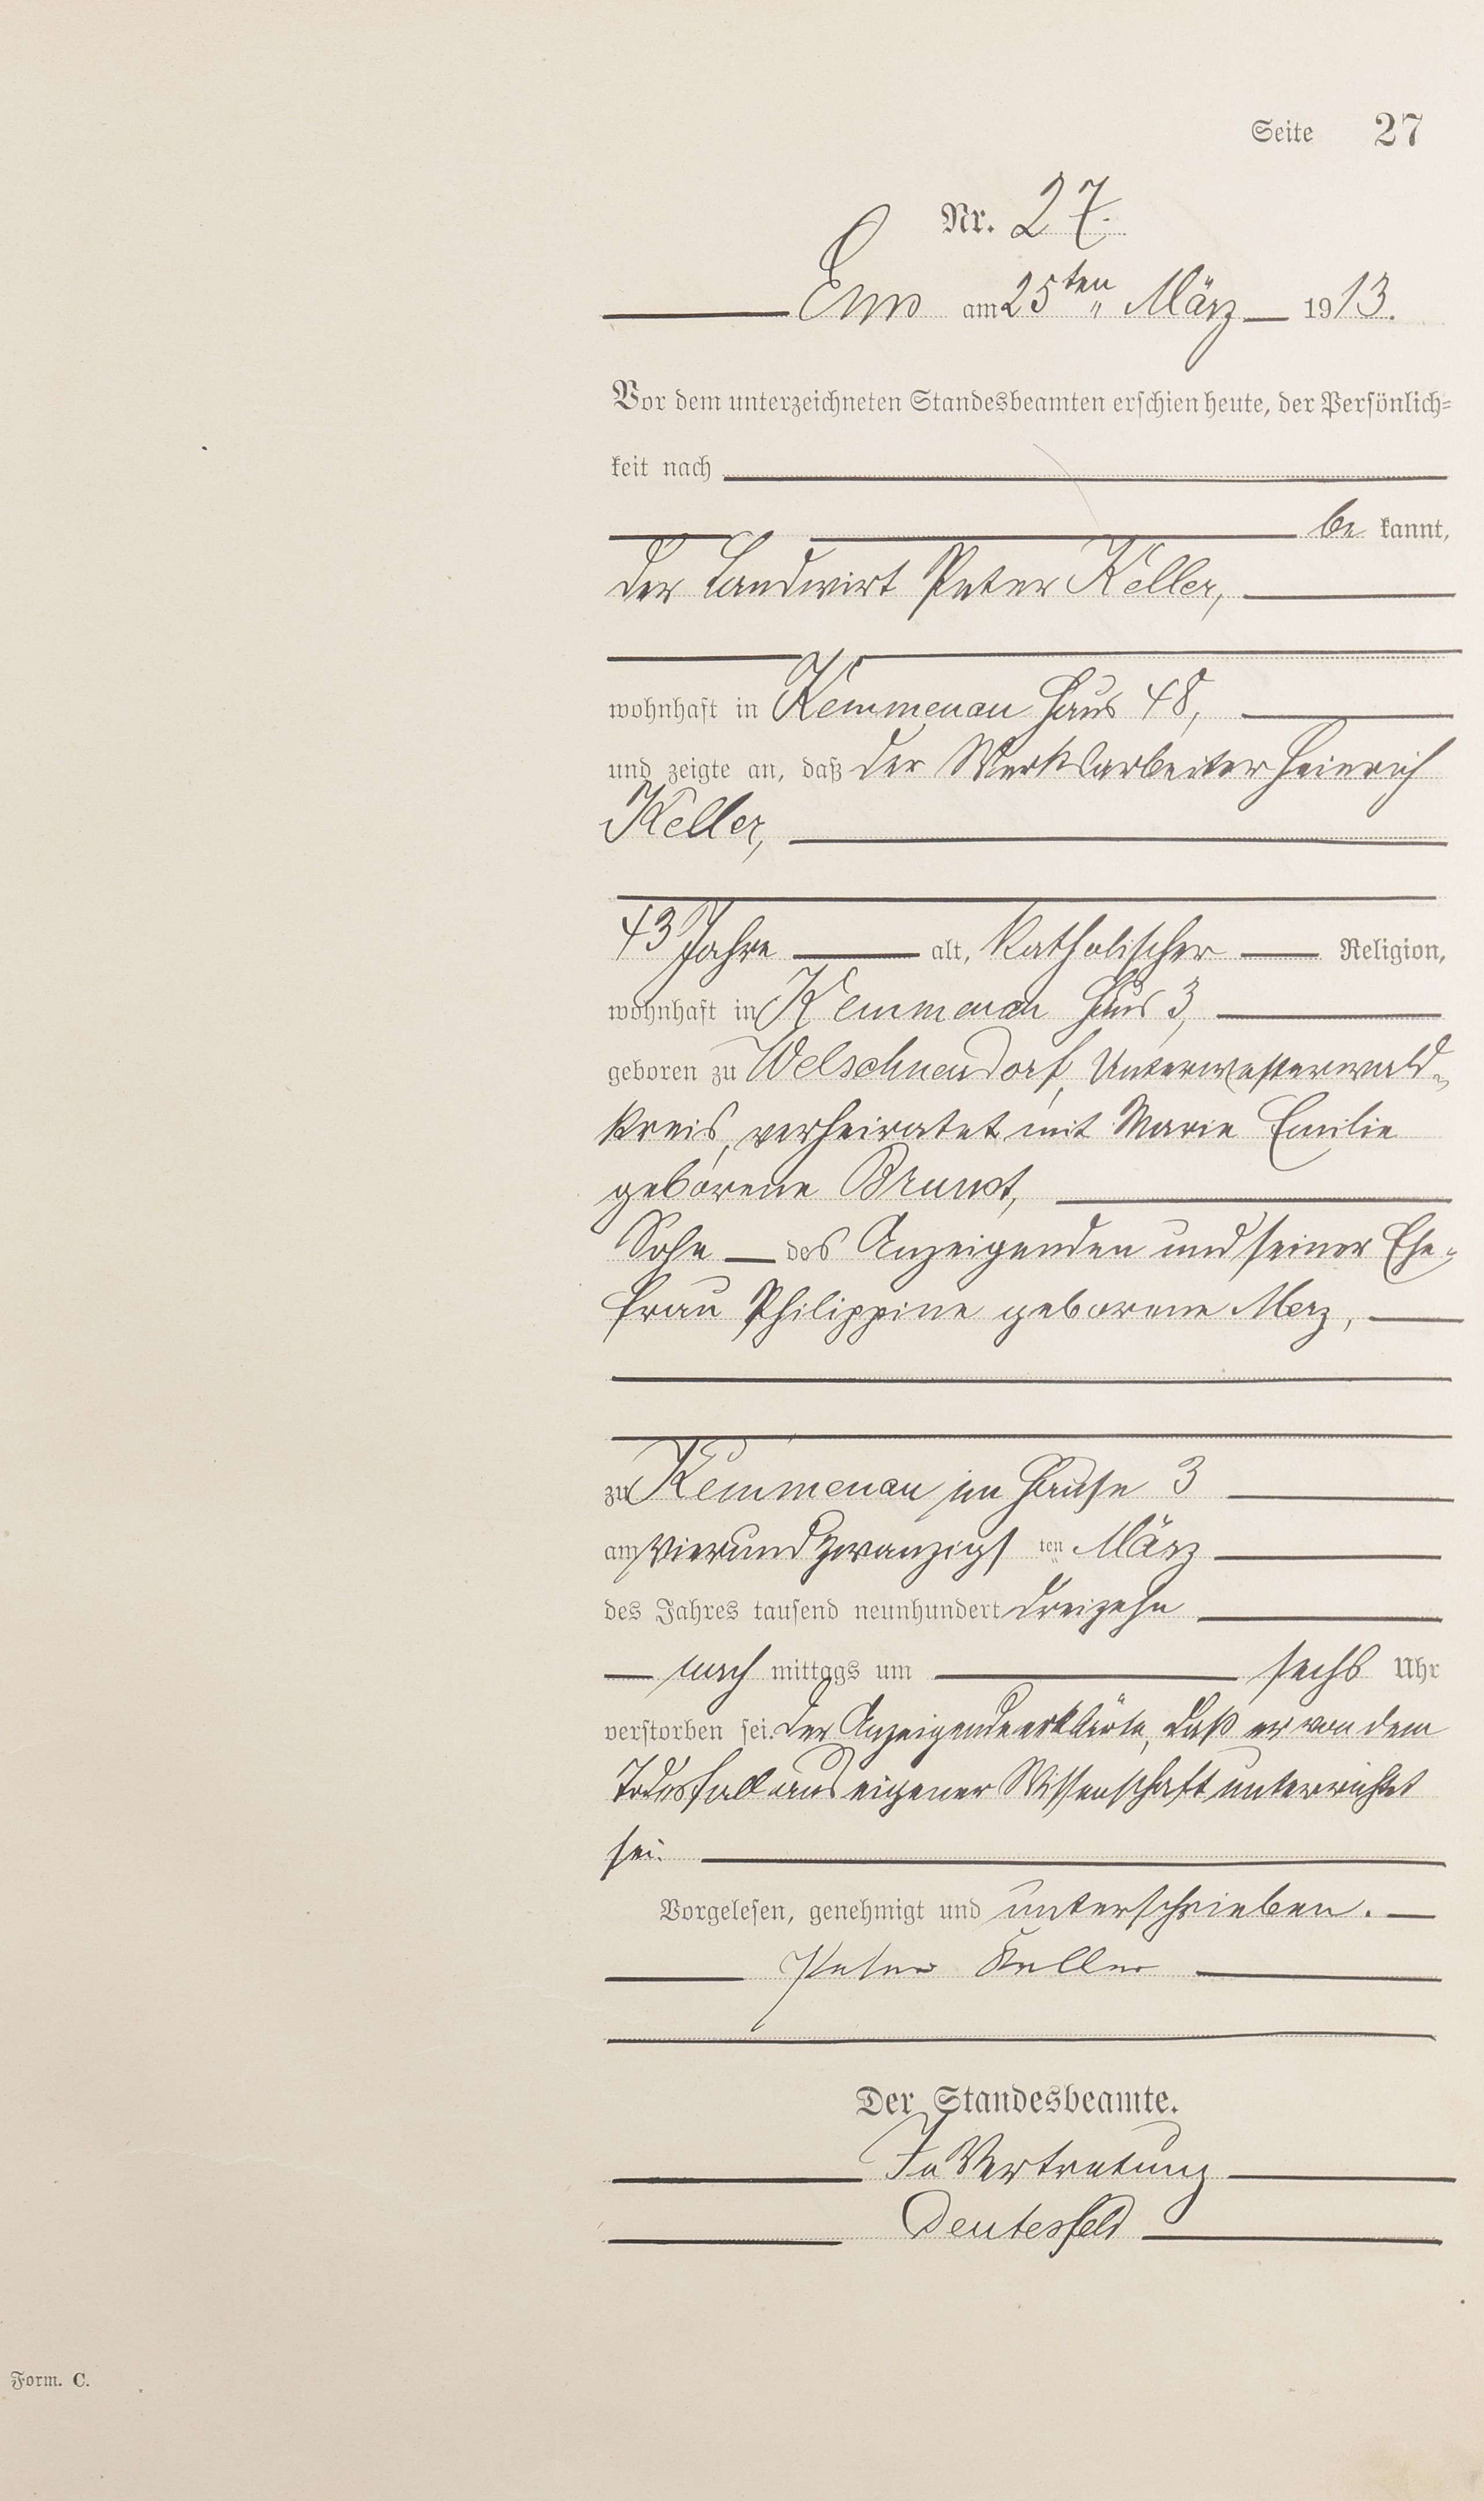 Seite 27
Nr. 27.
Ems am 25ten März 1913.
Vor dem unterzeichneten Standesbeamten erschien heute, der Persönlich-
keit nach
bekannt,
der Landwirt Peter Keller,
wohnhaft in Kemmenau Haus 48,
und zeigte an, daß der Werksarbeiter Heinrich
Keller,
43 Jahre alt, katholischer Religion,
wohnhaft in Kemmenau Haus 3,
geboren zu Welschneudorf, Unterwesterwald-
kreis, verheiratet mit Marie Emilie
geborene Brunst,
Sohn des Anzeigenden und seiner Ehe-
frau Philippine geborene Merz,
zu Kemmenau im Hause 3
am vierundzwanzigsten März
des Jahres tausend neunhundert dreizehn
nachmittags um sechs Uhr
verstorben sei. Der Anzeigende erklärte, daß er von dem
Todesfall aus eigener Wissenschaft unterrichtet
sei.
Vorgelesen, genehmigt und unterschrieben.
Peter Keller
Der Standesbeamte.
In Vertretung
Deutesfeld
Form. C.